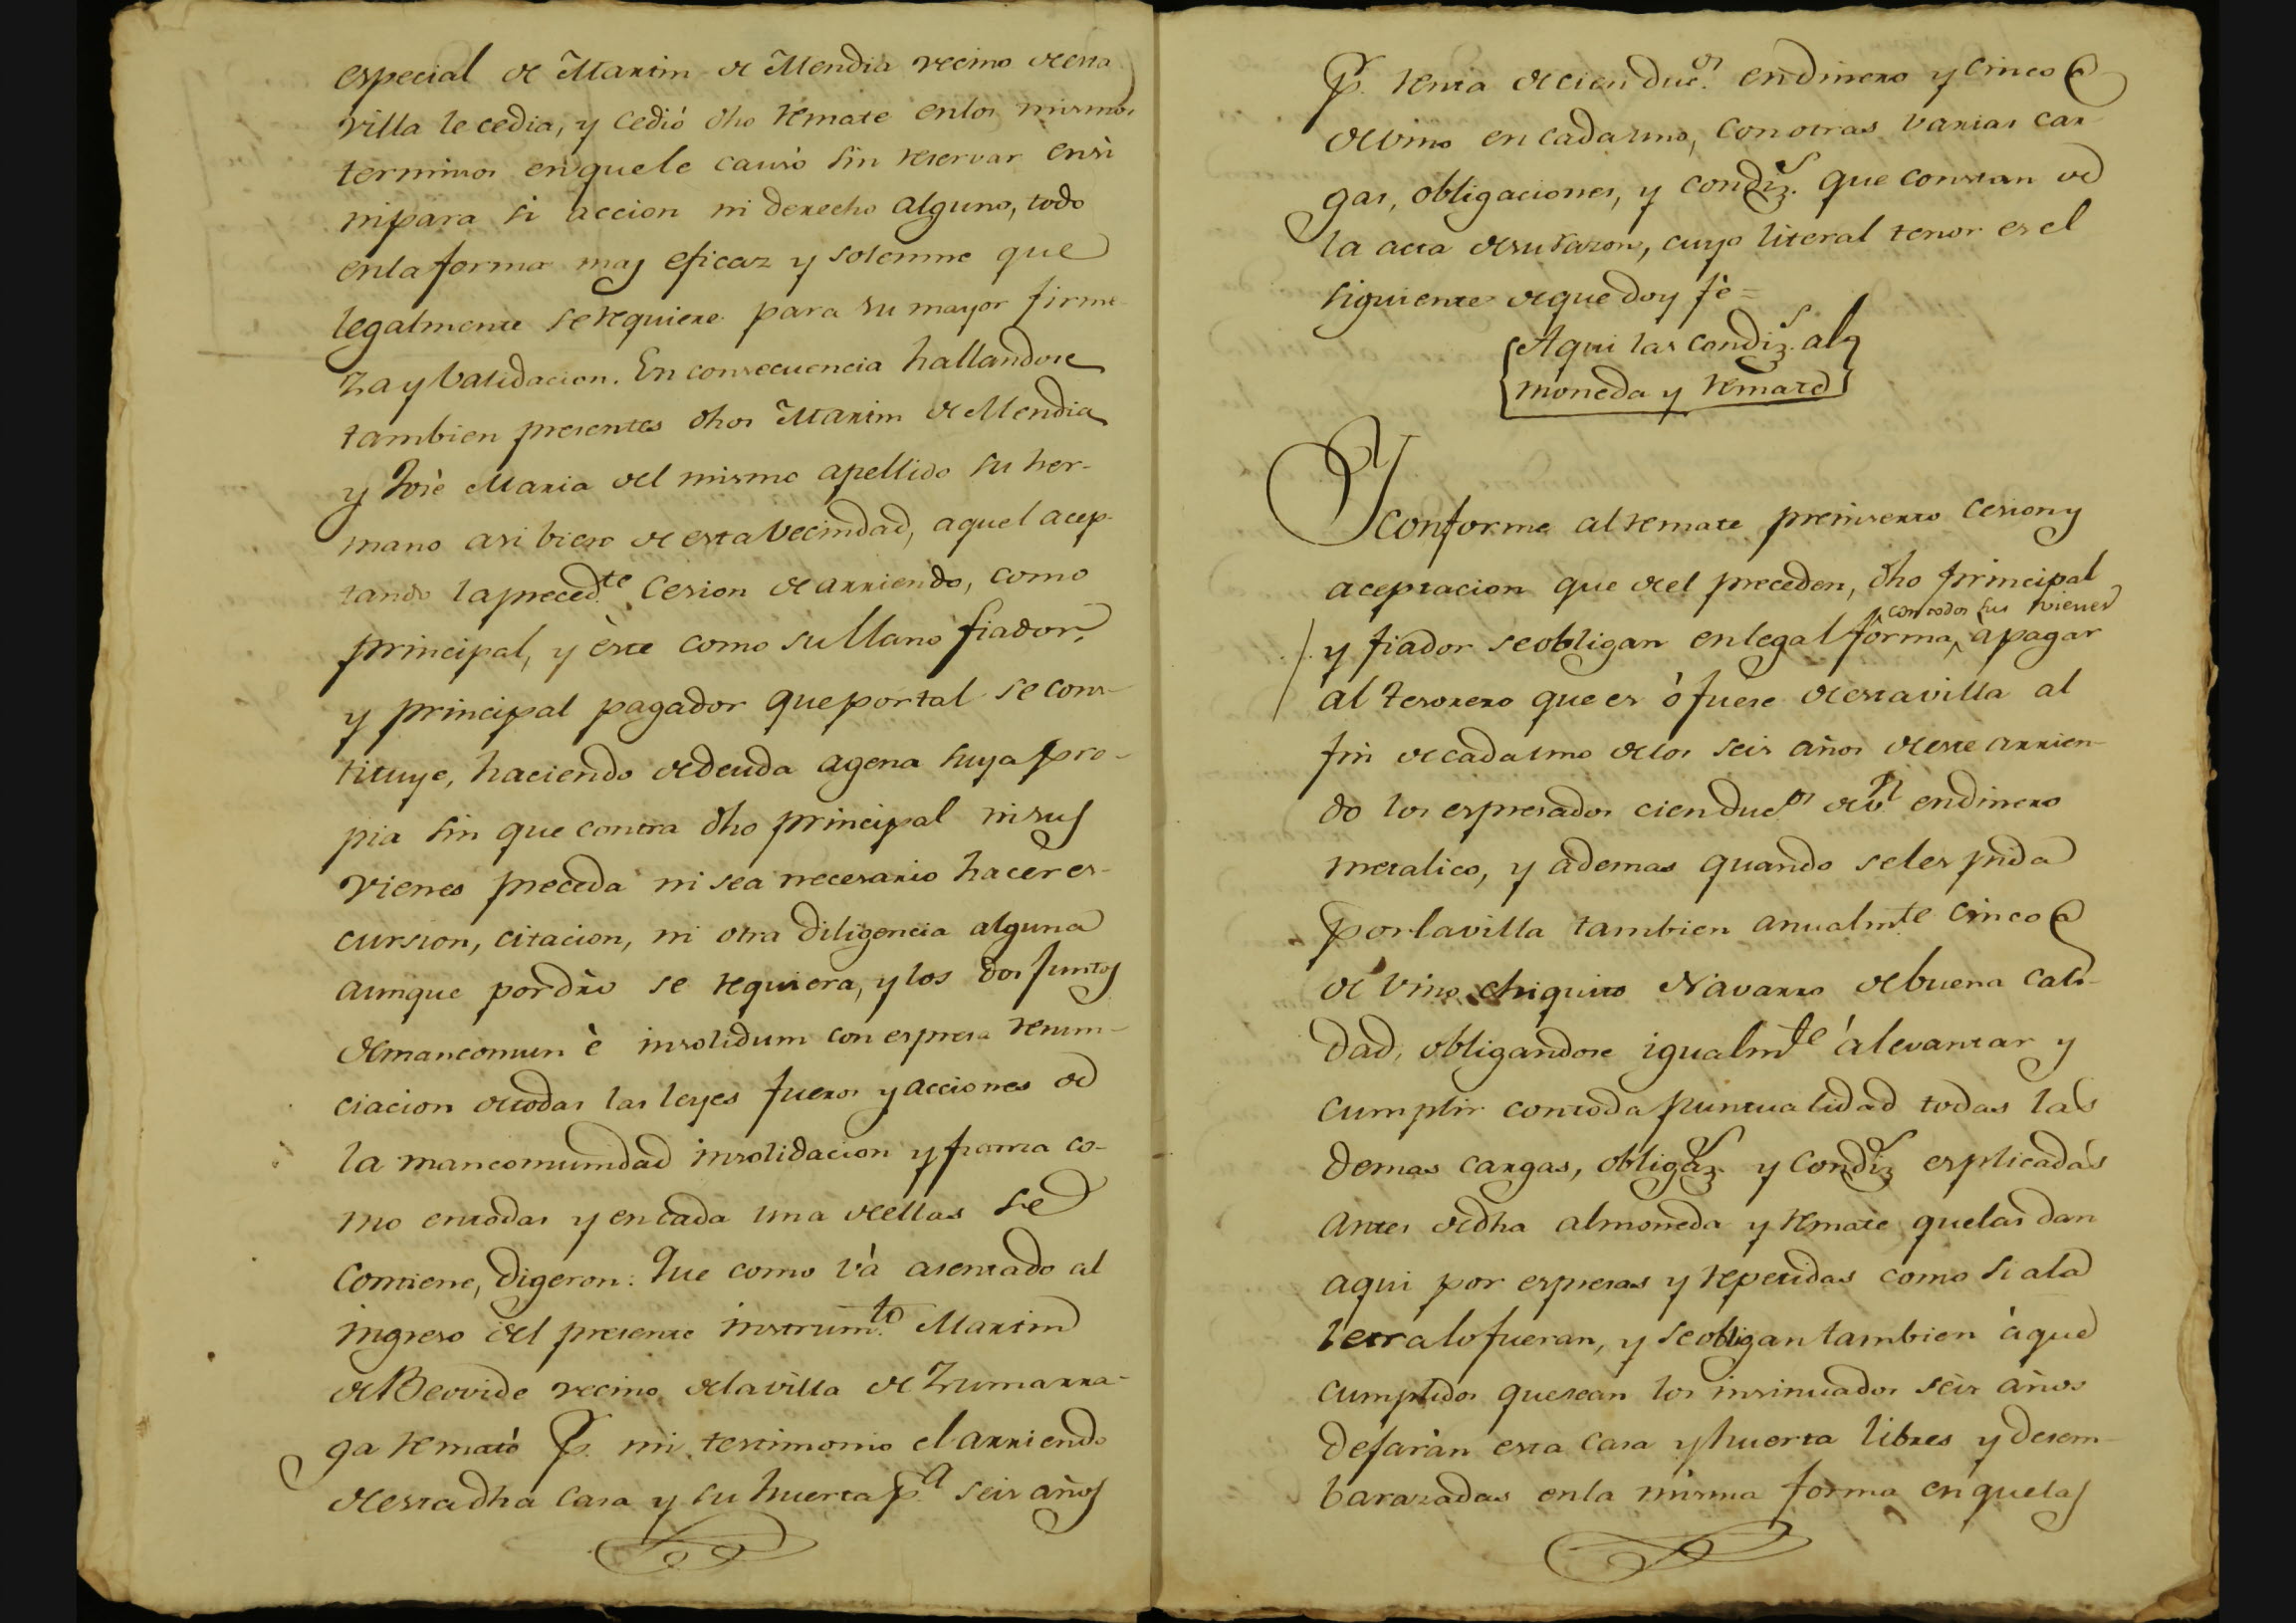 especial de Martin de Mendia vecino de esta
villa le cedia, y cedió dho remate en los mismos
terminos en que le causó sin reservar en sì
ni para si accion ni derecho alguno, todo
en la forma mas eficaz y solemne que
legalmente se requiere para su mayor firme
za y validacion. En consecuencia hallandose
tambien presentes dhos Martin de Mendia
y Josè Maria del mismo apellido su her-
mano asi bien de esta vecindad, aquel acep-
tando la preced.te Cesion de arriendo, como
principal, y èste como su llano fiador,
y principal pagador que por tal se cons-
tituye, haciendo de deuda agena suya pro-
pia sin que contra dho principal ni sus
vienes preceda ni sea necesario hacer es-
cursion, citacion, ni otra diligencia alguna
aunque por dro se requiera, y los dos juntos
de mancomun è insolidum con espresa renun-
ciacion de todas las leyes fueros y acciones de
la mancomunidad insolidacion y fianza co-
mo en todas y en cada una de ellas se
contiene, digeron: Que como và asentado al
ingreso del presente instrum.to Martin
de Beovide vecino de la villa de Zumarra-
ga remató P. mi testimonio el arriendo
de esta dha casa y su huerta p.a seis años
P. renta de cien duc.os en dinero y cinco @
de vino en cada uno, con otras varias car
gas, obligaciones, y condiz.s que constan de
la acta de su razon, cuyo literal tenor es el
siguiente de que doy fè =
Aqui las condiz.s al
moneda y remate
Y conforme al remate preinserto cesion y
aceptacion que de el preceden, dho principal
y fiador se obligan en legal forma, ^con todos sus vienes à pagar
al tesorero que es ò fuese de esta villa al
fin de cada uno de los seis años de este arrien-
do los espresados cien duc.os de v.n en dinero
metalico, y ademas quando se les pida
por la villa tambien anualm.te cinco @
de vino chiquito Navarro de buena cali-
dad, obligandose igualm.te á levantar y
cumplir con toda puntualidad todas las
demas cargas, obligaz.s y condiz.s esplicadas
antes de dha almoneda y remate que las dan
aqui por espresas y repetidas como si a la
letra lo fueran, y se obligan tambien à que
cumplidos que sean los insinuados seis años
dejaràn esta casa y huerta libres y desem-
barazadas en la misma forma en que las